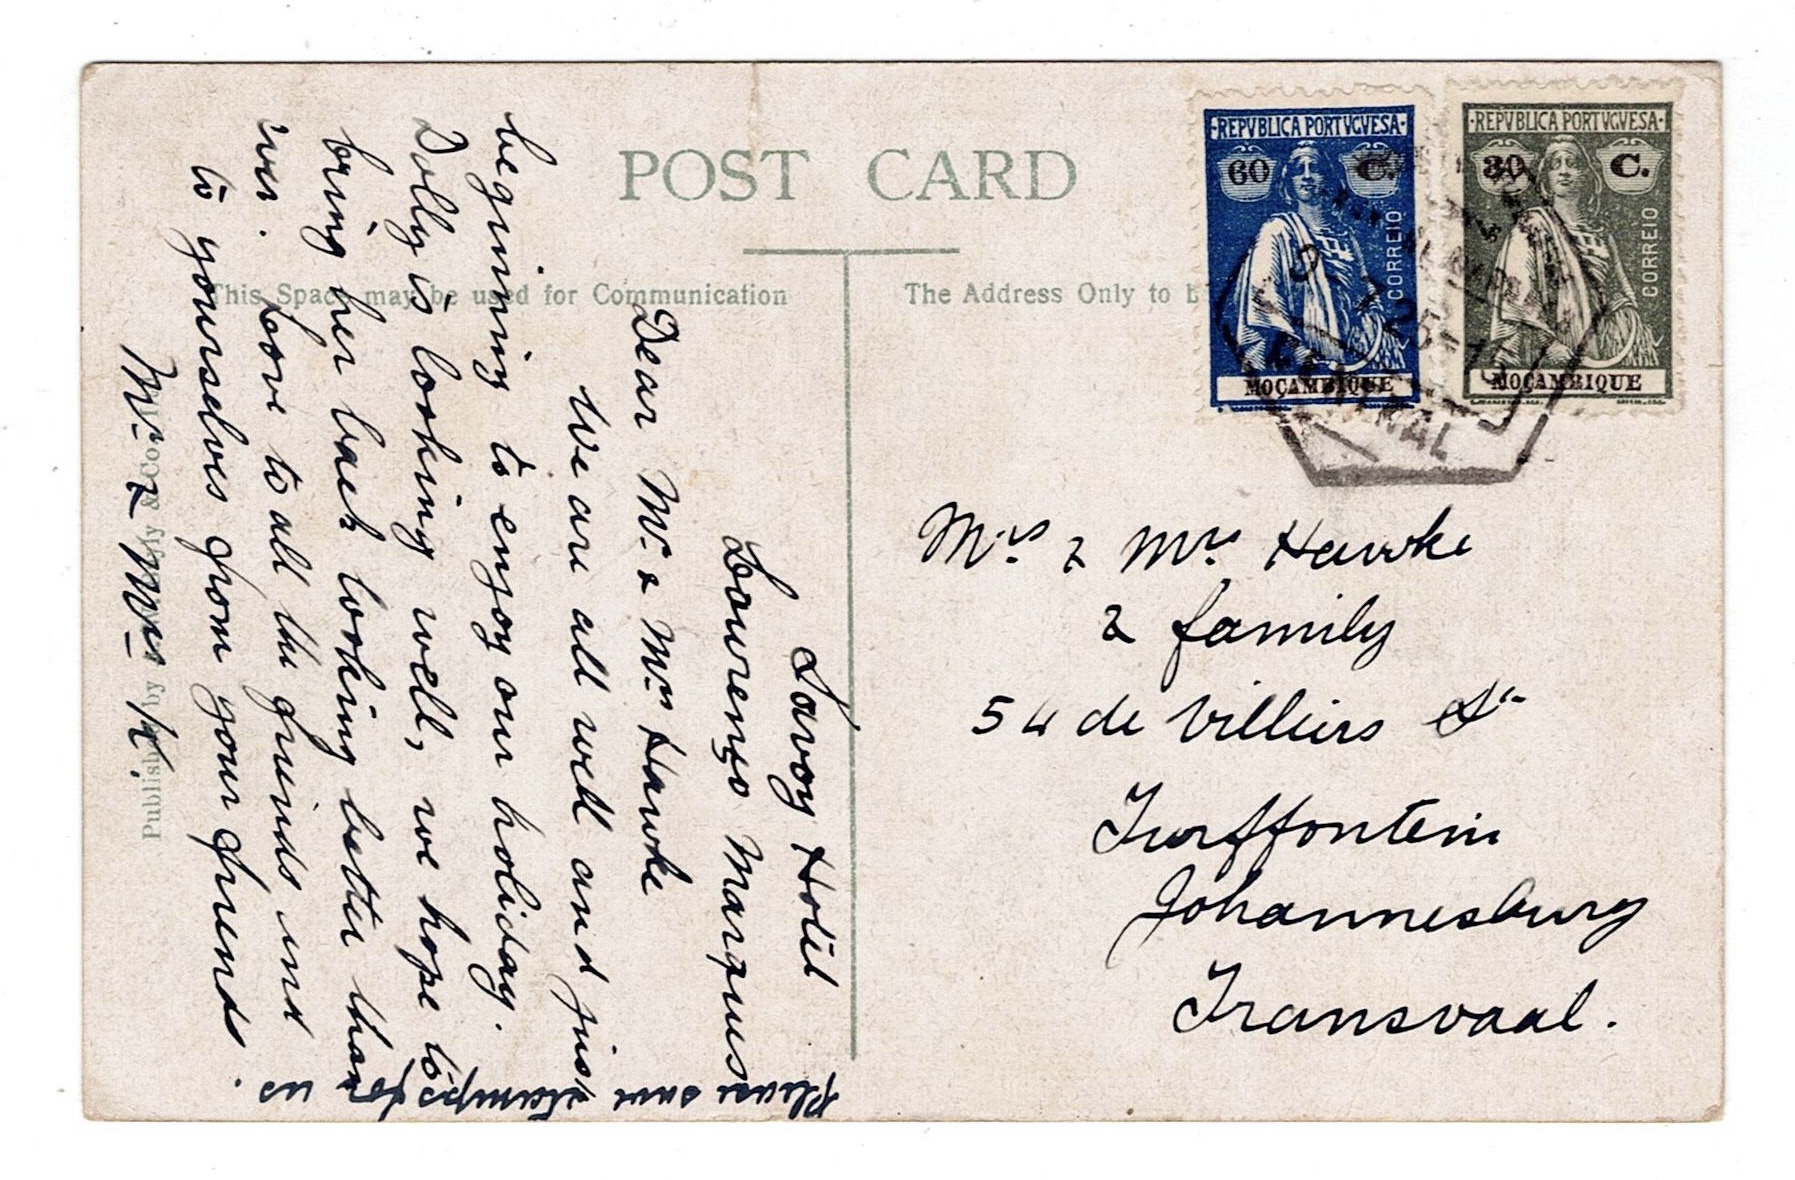 POST CARD
This Space may be used for Communication
The Address Only to
REPVBLICA PORTVGVESA
60 C.
CORREIO
MOÇAMBIQUE
REPVBLICA PORTVGVESA
30 C.
CORREIO
MOÇAMBIQUE
CENTRAL
Savoy Hotel
Lourenço Marques
Dear Mr. & Mrs Hawke
We are all well and just
beginning to enjoy our holiday.
Dolly is looking well, we hope to
bring her back looking better than
ever. Love to all the friends and
to yourselves from your friends
Mr & Mrs K.
Please save stamps for us.
Mrs & Mrs Hawke
& family
54 de Villiers St
Turffontein
Johannesburg
Transvaal.
Published by
& Co.